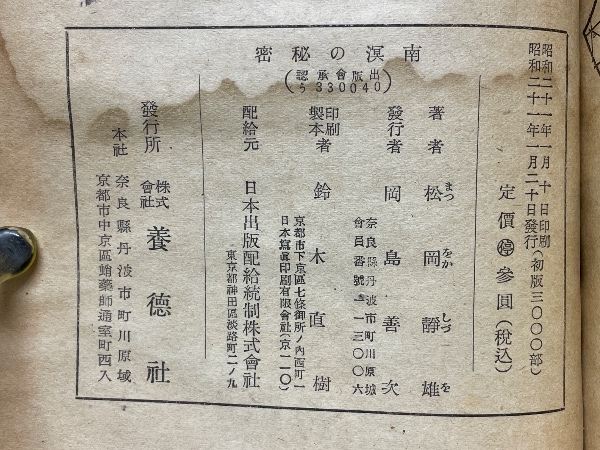 昭和二十一年一月十日印刷
昭和二十一年一月二十日發行(初版三〇〇〇部)
定價㊡參圓(税込)
南溟の秘密
(出版會承認 う330040)
著者 松岡靜雄
まつ をか しづ を
發行者 岡島善次
奈良縣丹波市町川原城
會員番號 一三〇〇六
印刷製本者 鈴木直樹
京都市下京區七條御所ノ內西町一
日本寫眞印刷有限會社(京一一〇)
配給元 日本出版配給統制株式會社
東京都神田區淡路町二ノ九
發行所 株式會社 養德社
本社 奈良縣丹波市町川原城
京都市中京區蛸藥師通室町西入